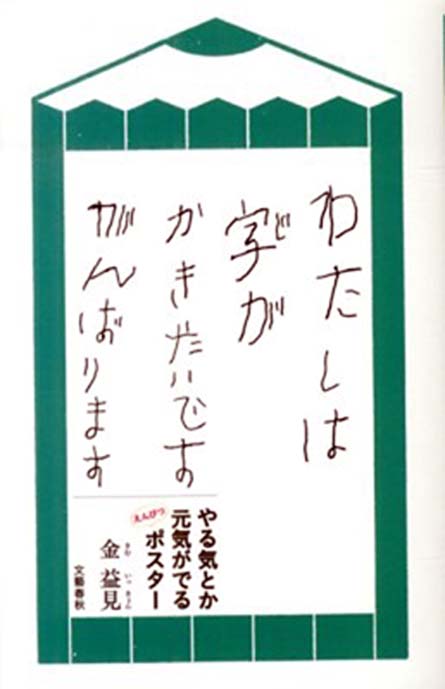 わたしは
字が
ど
かきたいです
がんばります
やる気とか
元気がでる
えんぴつ
ポスター
金 益見
きむ いっきょん
文藝春秋